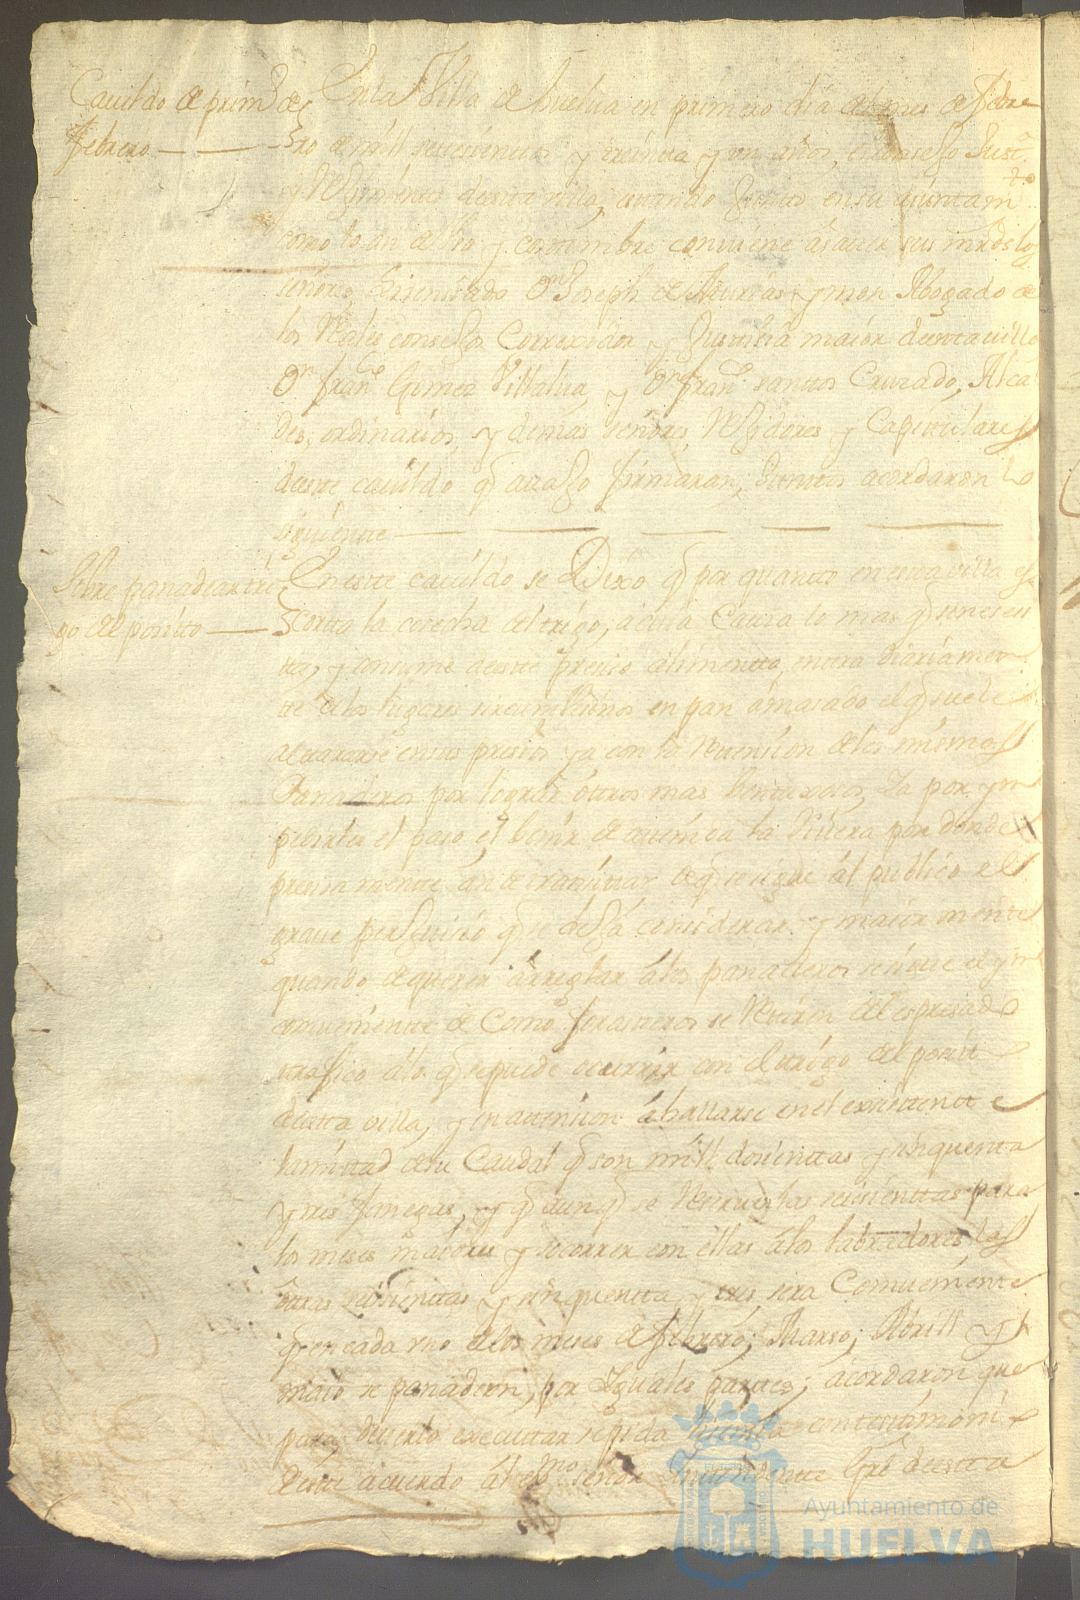 Cauildo de prim.º de
febrero
En la Villa de huelua en primero dia del mes de febre
ro de mill setecientos y treinta y un años, el consejo Just.ª
y Regimiento desta villa, estando Juntos en su aiuntam.to
como lo an de Uso y costumbre conviene á sauer sus mrds los
señores Lisenciado Dn Joseph de Asturias y mon Abogado de
los Reales consejos Correxidor y Justicia maior desta villa
Dn fran.co Gomez Villalua, y Dn fran.co santtos Cruzado, Alca
des, ordinarios, y demas señores Regidores y Capitulares
deste cauildo q auajo firmaran, Juntos acordaron lo
siguiente
Sobre panadear tri
go del posito
En este cauildo se Dixo q por quanto en esta villa es
corta la cosecha del trigo, a cuia Causa lo mas q se nesesi
ta, y consume deste presiso alimento, entra diariamen
te de los lugares sircumbesinos en pan amasado el q suele
alterarse en sus presios ya con la retension de los mismos
Panaderos por lograr otros mas bentaxosos, Ya por ym
pedirles el paso, el benir de auenida la Riuera por donde
presisamente an de transitar de q se sigue al publico el
graue perjuisio q se deja considerar y maiormente
quando de querer arreglar á los panaderos se sigue el yn
comueniente de Como forasteros se retiren del espresado
trafico á lo q se puede ocurrir con el trigo del posito
desta villa, y en atension á hallarse en el existente
la mitad de su Caudal q son mill dosientas y sinquenta
y tres fanegas, y q aunq se reserven las seisientas para
los meses maiores y socorrer con ellas á los labradores, las
otras seisientas y sinquenta y tres sera Comueniente
q en cada vno de los meses de febrero, Marso, Abrill y
maio se panadeen, por Yguales partes; acordaron que
para poderlo executar se pida lisensia con testimoni o
deste acuerdo al exmo señor Yntendente Grl desta
Ayuntamiento de
HUELVA